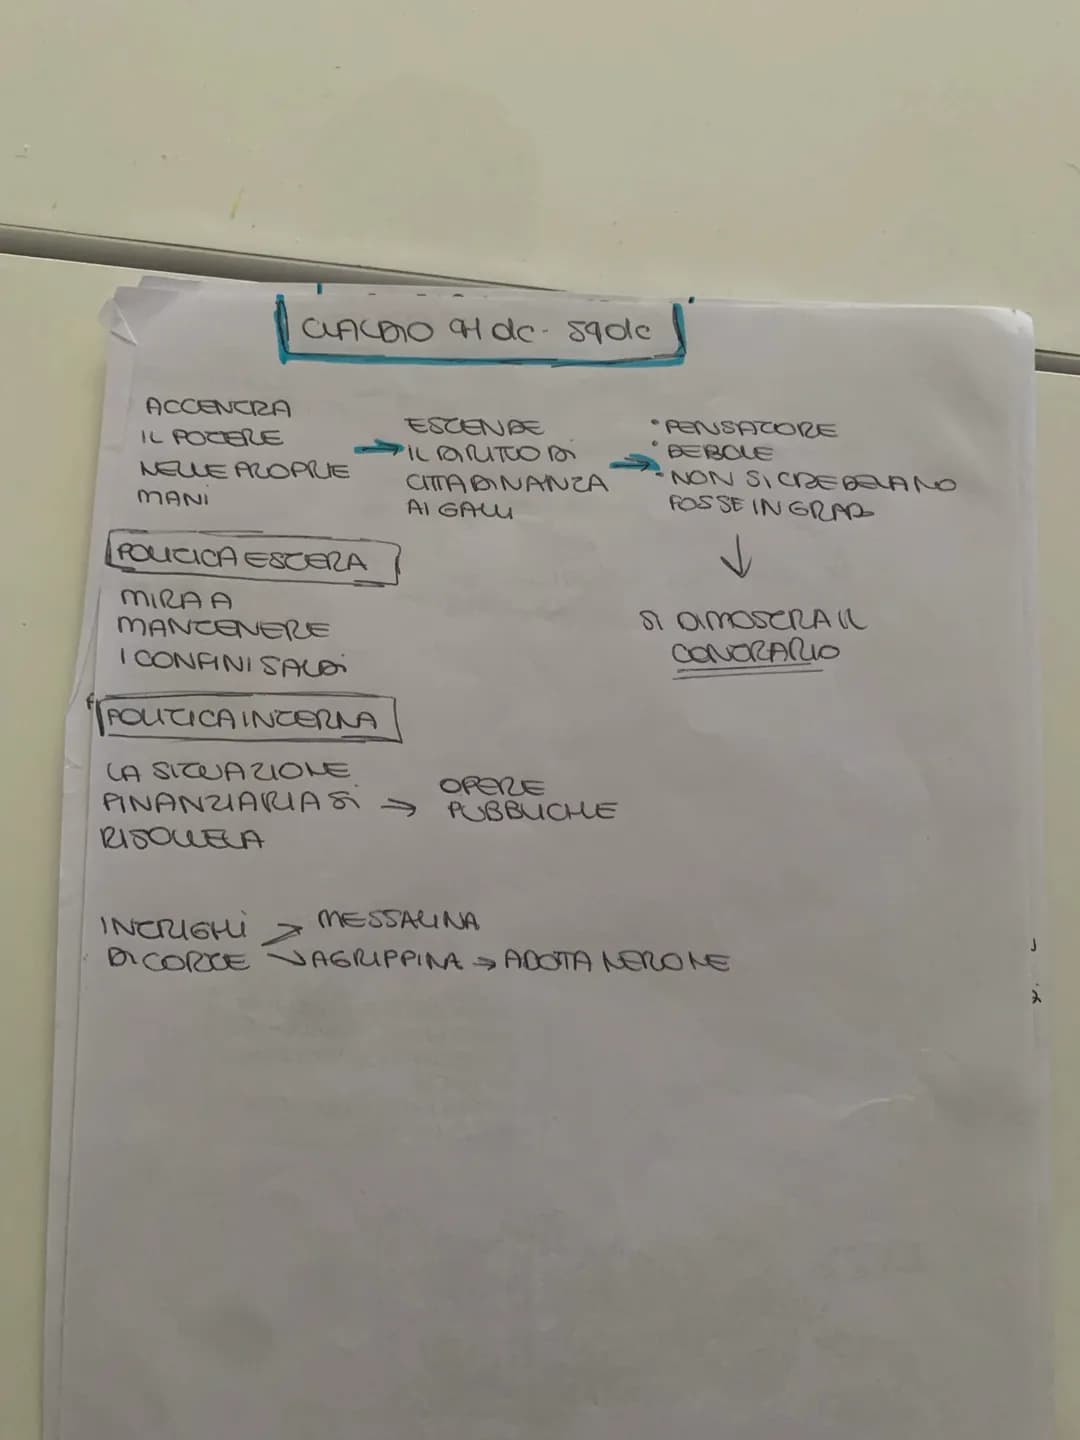 CLAUDIO 41 dc - 54 dc
ACCENTRA
IL POTERE
NELLE PROPRIE
MANI
ESTENDE
IL DIRITTO DI
CITTADINANZA
AI GALLI
• PENSATORE
• DEBOLE
• NON SI CREDEVANO
FOSSE IN GRADO
SI DIMOSTRA IL
CONTRARIO
POLITICA ESTERA
MIRA A
MANTENERE
I CONFINI SALDI
POLITICA INTERNA
LA SITUAZIONE
FINANZIARIA SI
RISOLLEVA
OPERE
PUBBLICHE
INTRIGHI
DI CORTE
MESSALINA
AGRIPPINA → ADOTTA NERONE